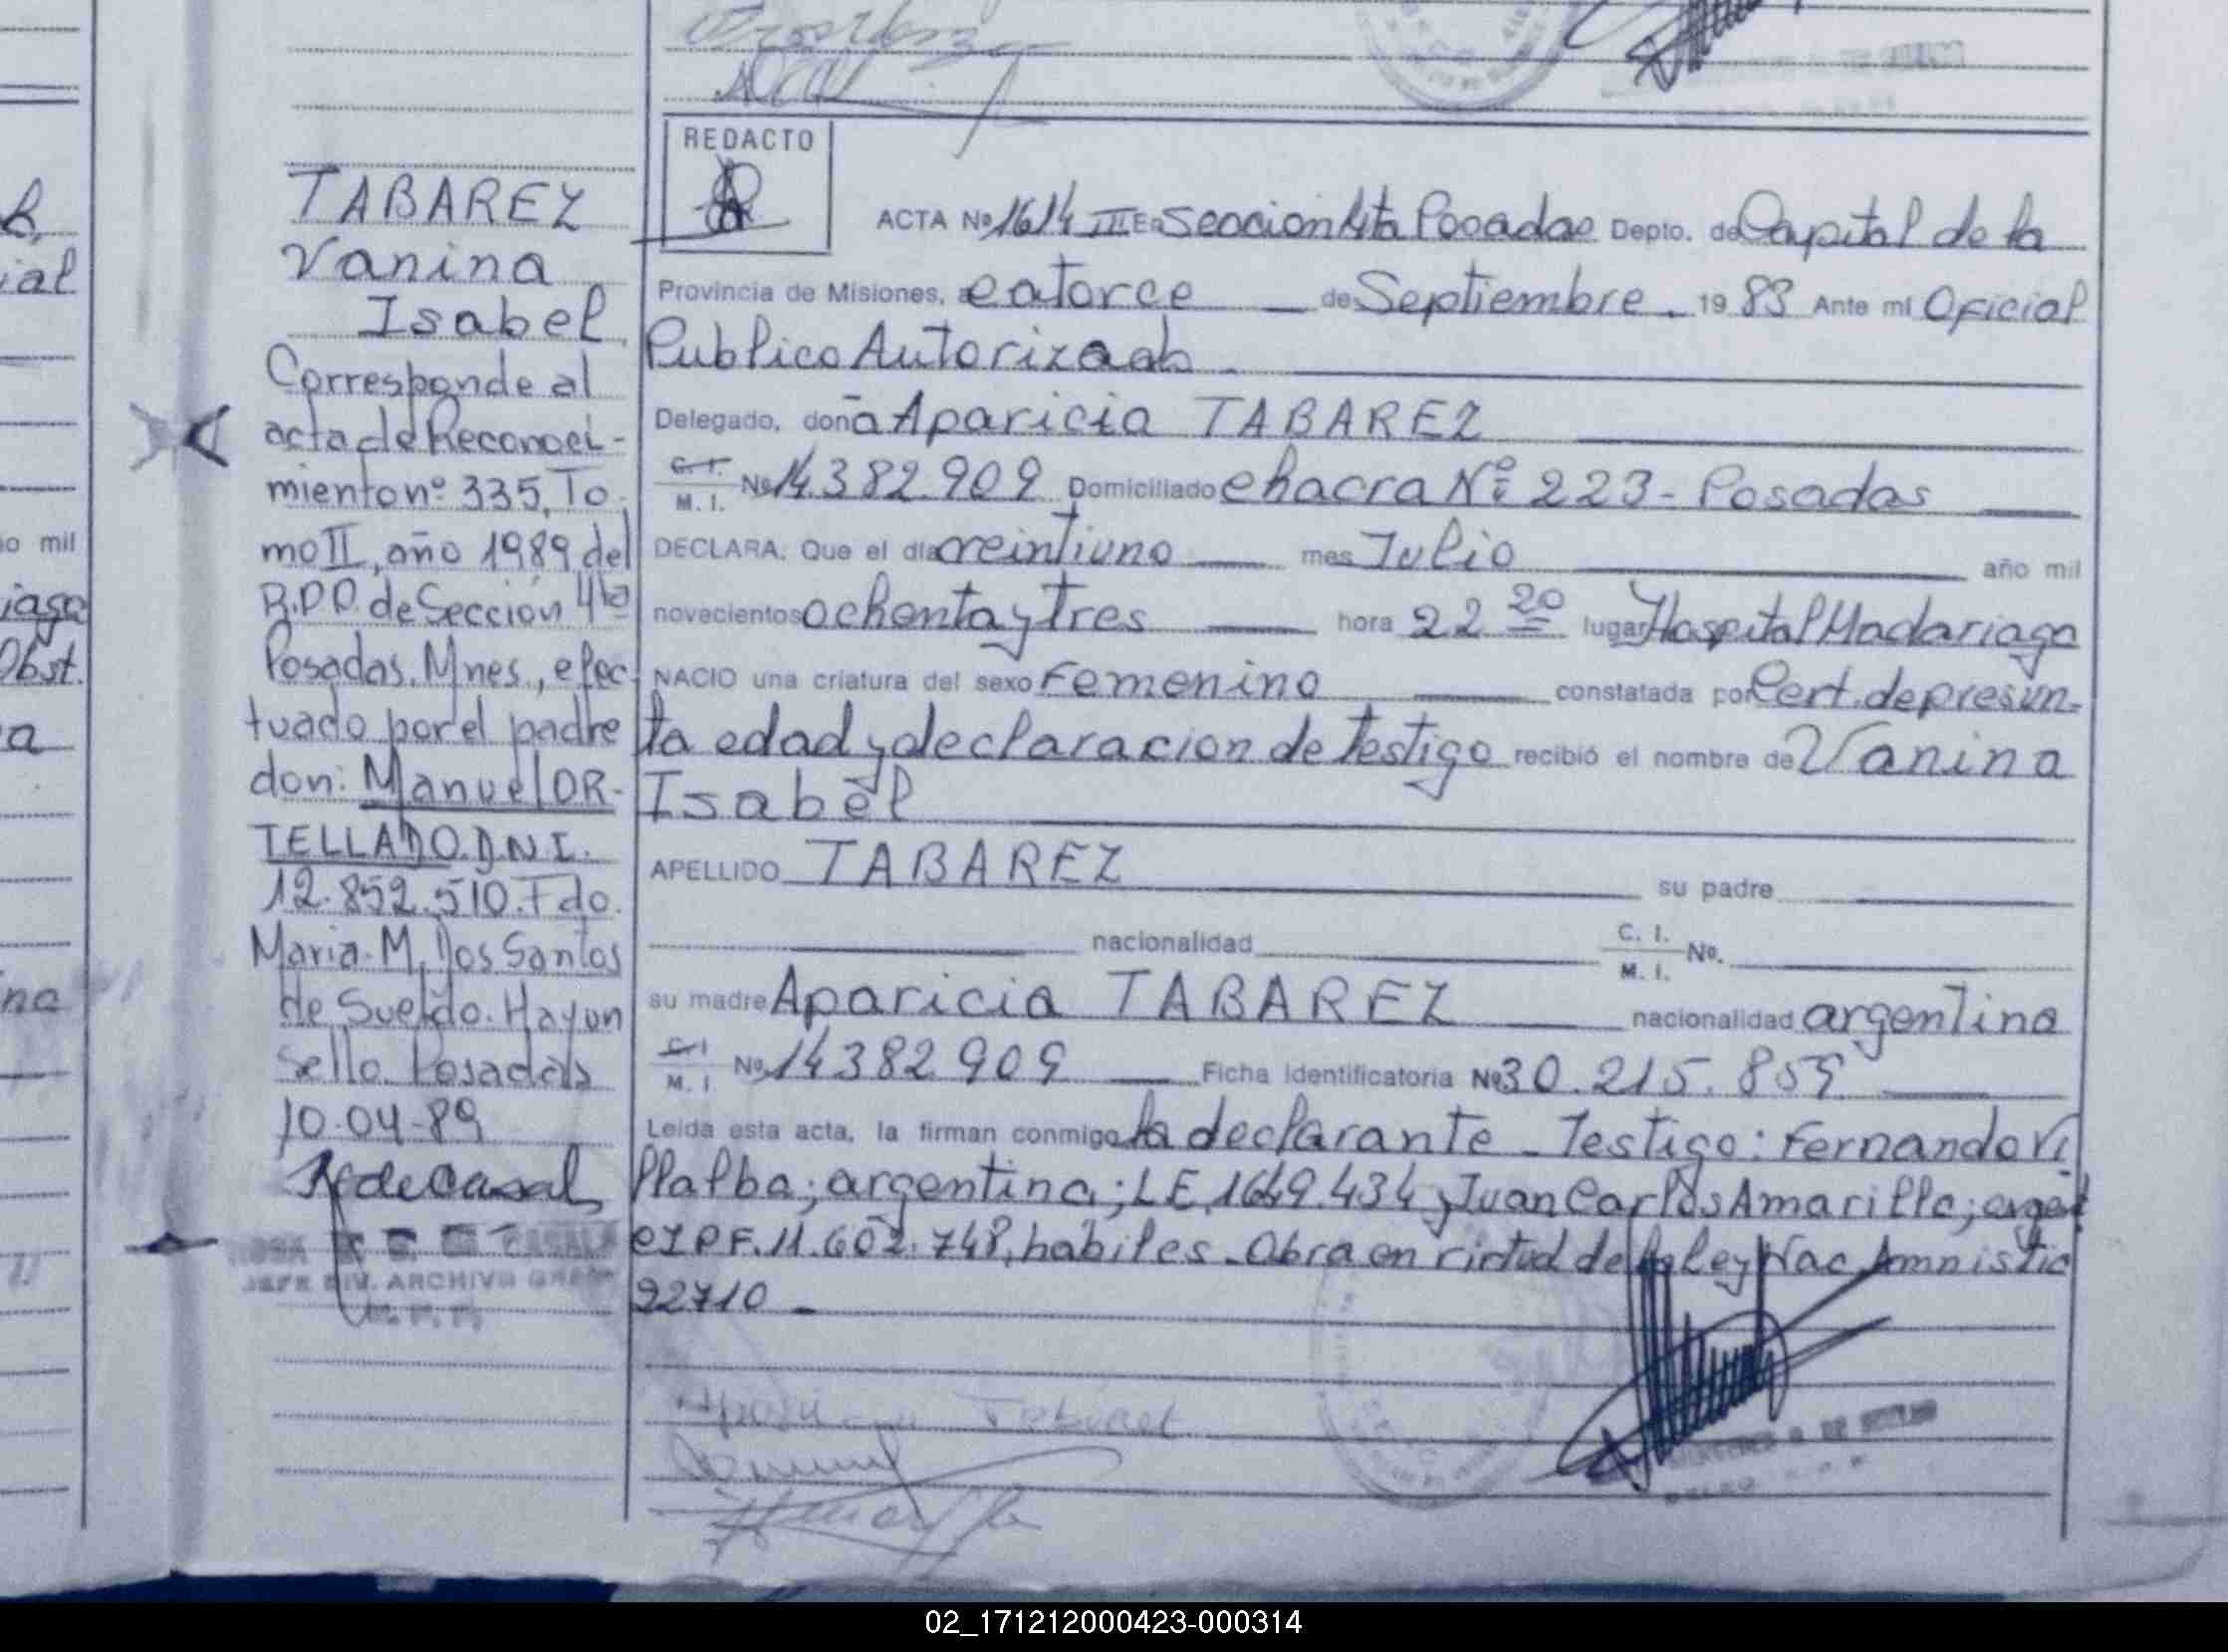 TABAREZ
Vanina
Isabel
Corresponde al
acta de Reconoci-
miento nº 335, To
mo II, año 1989 del
R.P.P. de Sección 4ta
Posadas. Mnes., efec-
tuado por el padre
don: Manuel OR-
TELLADO. D.N.I.
12.852.510. Fdo.
Maria. M. Dos Santos
de Sueldo. Hay un
sello. Posadas
10-04-89
JEFE DIV. ARCHIVO
REDACTO
ACTA Nº 1614 III En Seccion 4ta Posadas Depto. de Capital de la
Provincia de Misiones, a catorce de Septiembre. 19 83 Ante mi Oficial
Publico Autorizado
Delegado, doña Aparicia TABAREZ
C. I. M. I. Nº 14.382.909 Domiciliado chacra Nº 223 - Posadas
DECLARA: Que el día veintiuno mes Julio año mil
novecientos ochenta y tres hora 22 20 lugar Hospital Madariaga
NACIO una criatura del sexo Femenino constatada por Cert. de presun-
ta edad y declaracion de testigo recibió el nombre de Vanina
Isabel
APELLIDO TABAREZ su padre
nacionalidad C. I. M. I. No.
su madre Aparicia TABAREZ nacionalidad argentina
C. I. M. I. Nº 14382909 Ficha Identificatoria Nº 30.215.859
Leida esta acta, la firman conmigo la declarante - Testigo: Fernando Vi
llalba; argentino; LE. 1649.434 y Juan Carlos Amarilla; argent
CIPF. 11.602.748, habiles. Obra en virtud de la Ley Nac Amnistia
22710 -
02_171212000423-000314